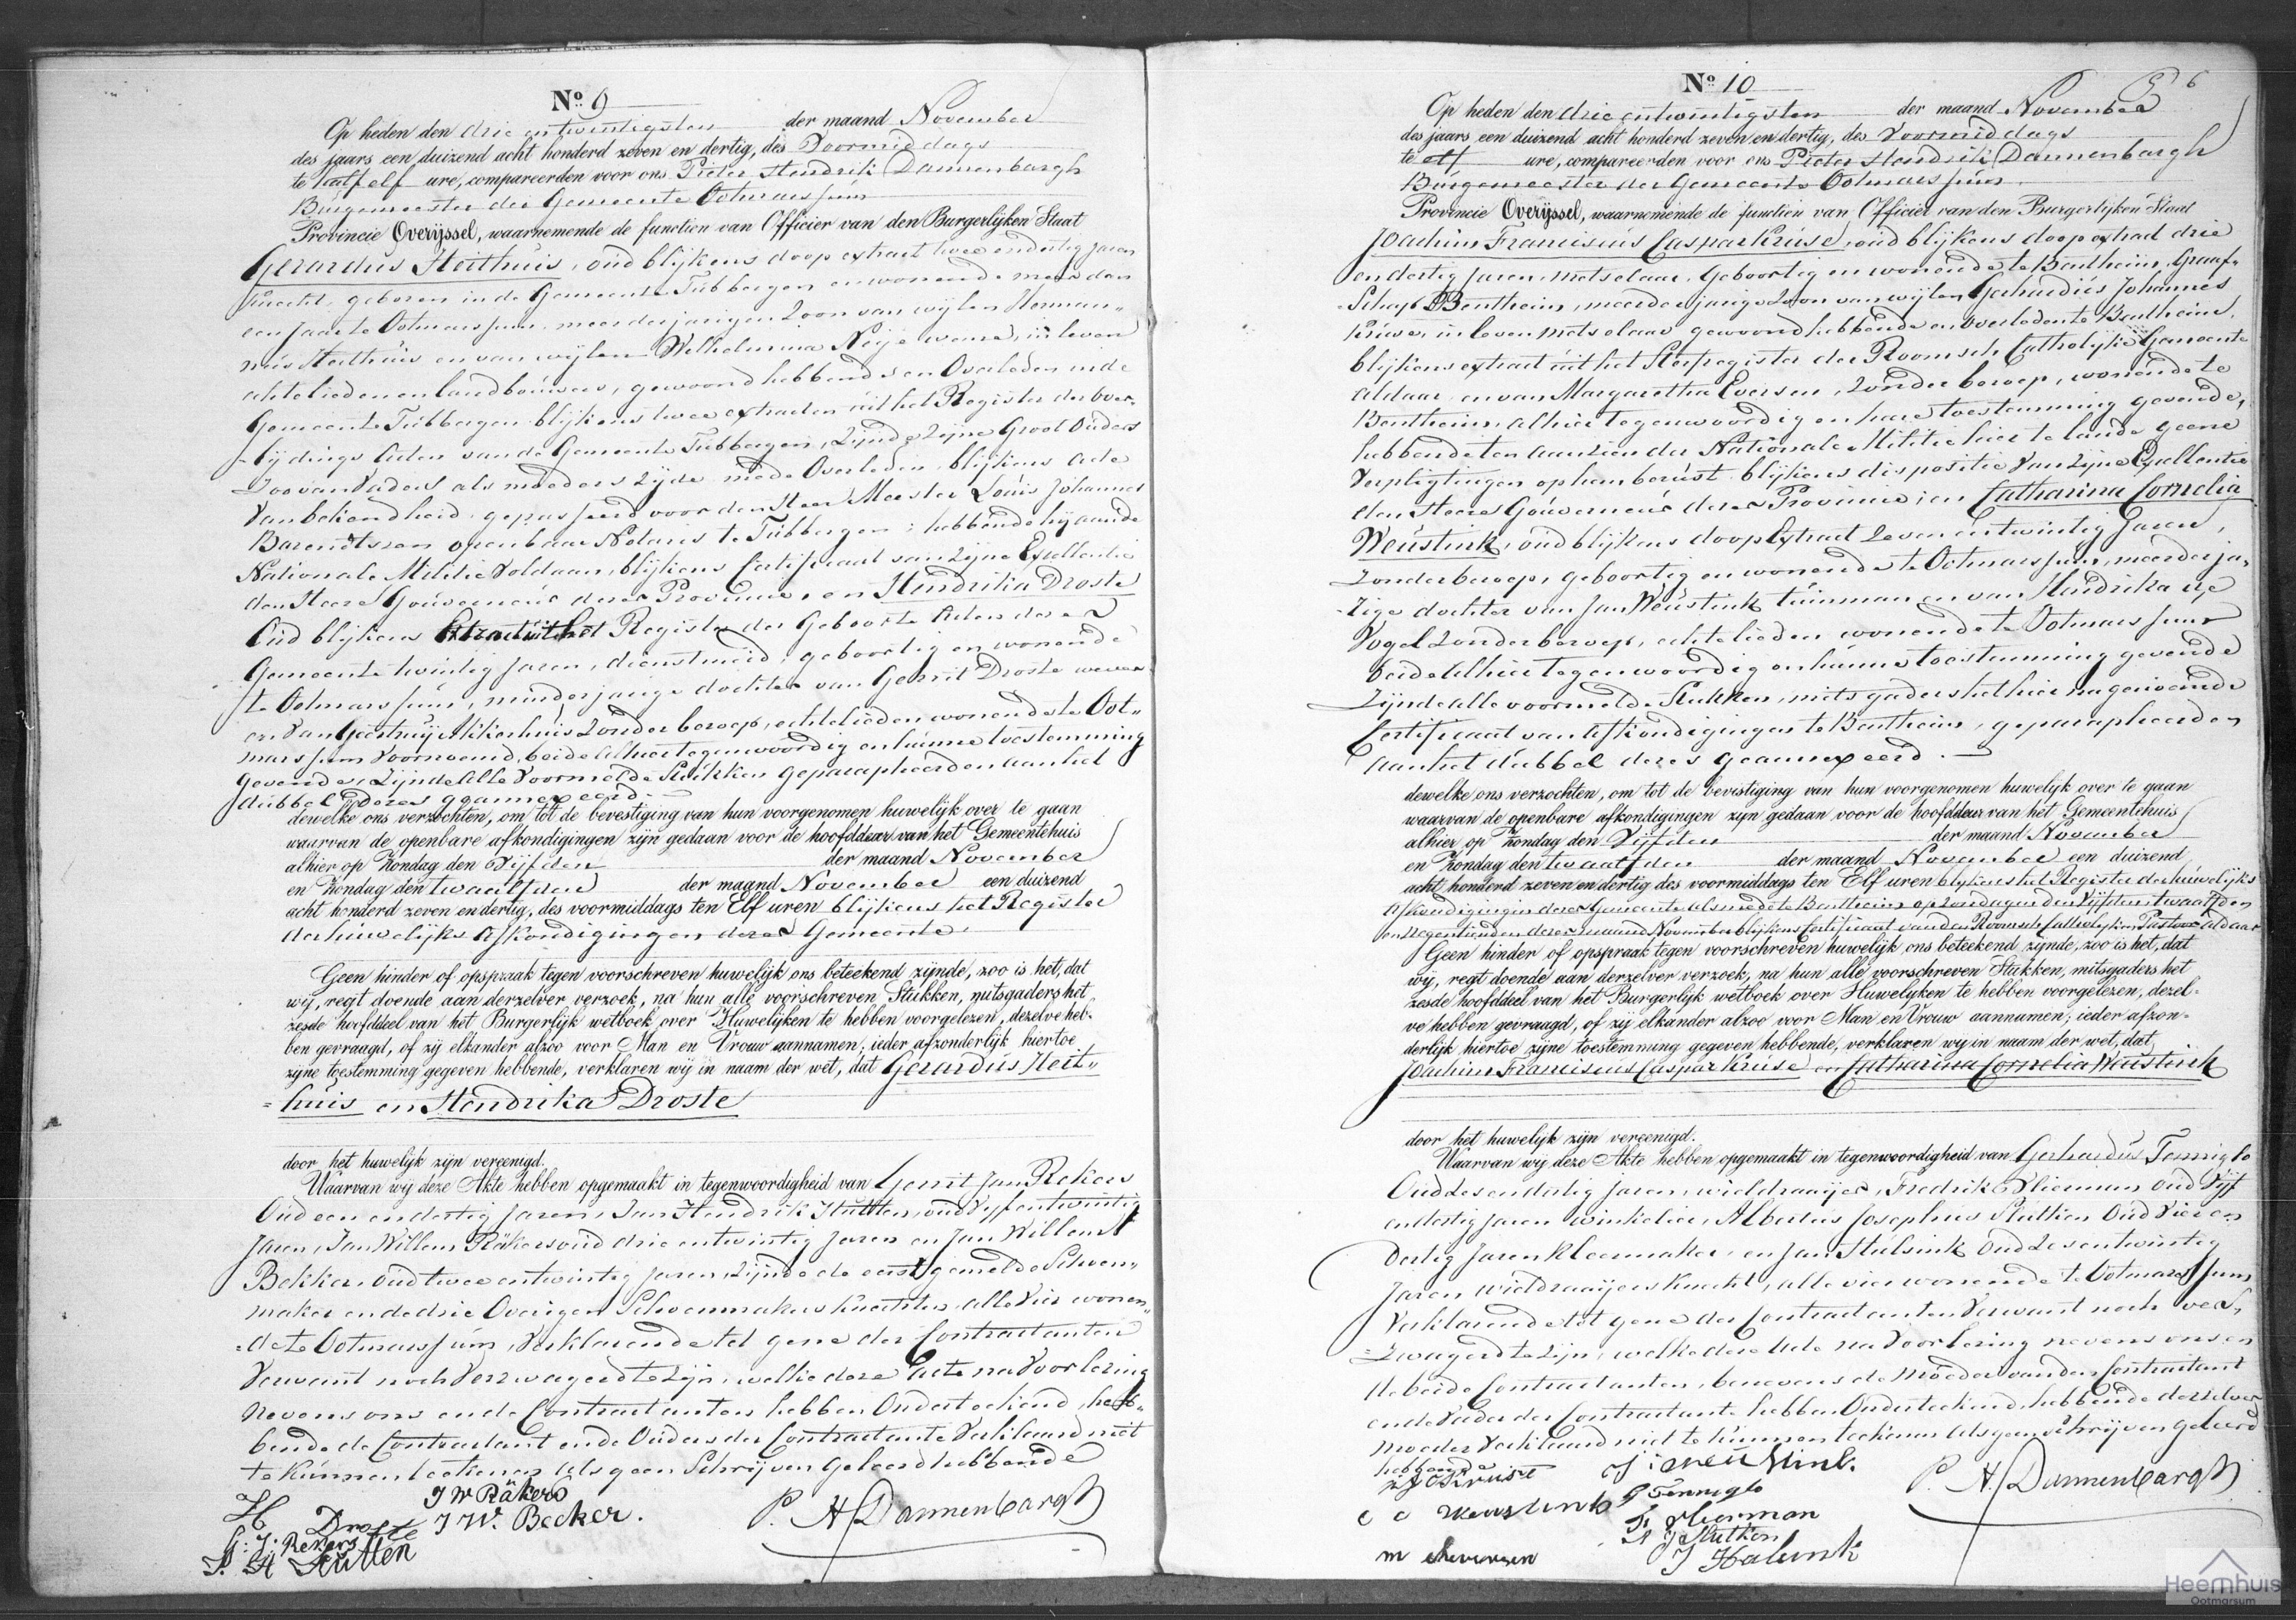 Nº 9
Op heden den drie entwintigsten der maand November
des jaars een duizend acht honderd zeven en dertig, des Voormiddags
te half elf ure, compareerden voor ons Pieter Hendrik Dannenbargh
Burgemeester der Gemeente Ootmarssum
Provincie Overijssel, waarnemende de functien van Officier van den Burgerlijken Staat
Gerardus Heithuis, oud blijkens doop extract twee endertig jaren
knecht, geboren in de Gemeente Tubbergen en wonende meer dan
een jaar te Ootmarssum, meerderjarigen Zoon van wijlen Herman-
nus Heithuis en van wijlen Wilhelmina Neijewene, in leven
echtelieden en landbouwers, gewoond hebbende en Overleden in de
Gemeente Tubbergen blijkens twee extracten uit het Register der over-
lijdings Acten van de Gemeente Tubbergen, Zijnde Zijne Groot Ouders
Zoo van Vaders als moeders Zijde mede Overleden blijkens acte
van bekendheid gepasseerd voor den Heer Meester Louis Johannes
Barendtszen openbaar Notaris te Tubbergen; hebbende hij aan de
Nationale Militie Voldaan, blijkens Certificaat van Zijne Excellentie
den Heere Gouverneur dezer Provincie, en Hendrika Droste
Oud blijkens Extract uit het Register der Geboorte Acten dezer
Gemeente twintig Jaren, dienstmeid, geboortig en wonende
te Ootmarssum, minderjarige dochter van Gerrit Droste wever
en van Geertruij Akkerhuis Zonder beroep, echtelieden wonende te Oot-
marssum Voornoemd, beide Alhier tegenwoordig en hunne toestemming
gevende, Zijnde Alle Voormelde Stukken geparapheerd en aan het
dubbel dezes geannexeerd.
dewelke ons verzochten, om tot de bevestiging van hun voorgenomen huwelijk over te gaan
waarvan de openbare afkondigingen zijn gedaan voor de hoofddeur van het Gemeentehuis
alhier op Zondag den Vijfden der maand November
en Zondag den twaalfden der maand November een duizend
acht honderd zeven en dertig, des voormiddags ten Elf uren blijkens het Register
der huwelijks Afkondigingen dezer Gemeente.
Geen hinder of opspraak tegen voorschreven huwelijk ons beteekend zijnde, zoo is het, dat
wij, regt doende aan derzelver verzoek, na hun alle voorschreven Stukken, mitsgaders het
zesde hoofddeel van het Burgerlijk wetboek over Huwelijken te hebben voorgelezen, dezelve heb-
ben gevraagd, of zij elkander alzoo voor Man en Vrouw aannamen; ieder afzonderlijk hiertoe
zijne toestemming gegeven hebbende, verklaren wij in naam der wet, dat Gerardus Heit-
huis en Hendrika Droste
door het huwelijk zijn vereenigd.
Waarvan wij deze Akte hebben opgemaakt in tegenwoordigheid van Gerrit Jan Rekers
Oud een en dertig jaren, Jan Hendrik Hutten, oud Vyfentwintig
Jaren, Jan Willem Räkers oud drie entwintig jaren en Jan Willem
Bekker, oud twee entwintig jaren, Zijnde de eerst gemelde Schoen-
maker en de drie Overigen Schoenmakers knechten, alle Vier wonen-
de te Ootmarssum, Verklarende tot gene der Contractanten
Verwant noch Verzwagerd te Zijn, welke deze Acte na Voorlezing
nevens ons en de Contractanten hebben Onderteekend, heb-
bende de Contractant en de Ouders der Contractante Verklaard niet
te kunnen teekenen als geen Schrijven Geleerd hebbende
H Droste J W Räkers P. H. Dannenbargh
G: J: Rekers J W. Becker.
J. H Hutten
Nº 10
6
Op heden den drie entwintigsten der maand November
des jaars een duizend acht honderd zeven en dertig, des Voormiddags
te elf ure, compareerden voor ons Pieter Hendrik Dannenbargh
Burgemeester der Gemeente Ootmarssum
Provincie Overijssel, waarnemende de functien van Officier van den Burgerlijken Staat
Joachim Franciscus Caspar Kruse, oud blijkens doop extract drie
en dertig Jaren, metselaar, Geboortig en wonende te Bentheim, Graaf-
Schap Bentheim, meerderjarige Zoon van wijlen Gerhardus Johannes
Kruse, in leven metselaar gewoond hebbende en overleden te Bentheim,
blijkens extract uit het Sterfregister der Roomsch Catholyke Gemeente
aldaar, en van Margaretha Eversen, Zonder beroep, wonende te
Bentheim, alhier tegenwoordig en hare toestemming gevende,
hebbende ten aanzien der Nationale Militie hier te lande geene
Verpligtingen op hem berust, blijkens dispositie Van Zijne Exellentie
den Heere Gouverneur dezer Provincie; en Catharina Cornelia
Weustink, oud blijkens doop Extract Zeven entwintig Jaren,
Zonder beroep, geboortig en wonende te Ootmarssum, meerderja-
rige dochter van Jan Weustink tuinman en van Hendrika de
Vogel Zonder beroep, echtelieden wonende te Ootmarssum
beide Alhier tegenwoordig en hunne toestemming gevende
Zijnde alle voormelde Stukken, mitsgaders het hier nagenoemde
Certificaat van Afkondigingen te Bentheim, geparapheerd en
aan het dubbel dezes geannexeerd.
dewelke ons verzochten, om tot de bevestiging van hun voorgenomen huwelijk over te gaan
waarvan de openbare afkondigingen zijn gedaan voor de hoofddeur van het Gemeentehuis
alhier op Zondag den Vijfden der maand November
en Zondag den twaalfden der maand November een duizend
acht honderd zeven en dertig des voormiddags ten Elf uren blijkens het Register der huwelijks
Afkondigingen dezer Gemeente als mede te Bentheim op Zondagen den Vijfden twaalfden
en Negentienden dezer maand November blijkens Certificaat van den Roomsch Catholyken Pastoor Aldaar
Geen hinder of opspraak tegen voorschreven huwelijk ons beteekend zijnde, zoo is het, dat
wij, regt doende aan derzelver verzoek, na hun alle voorschreven Stukken, mitsgaders het
zesde hoofddeel van het Burgerlijk wetboek over Huwelijken te hebben voorgelezen, dezel-
ve hebben gevraagd, of zij elkander alzoo voor Man en Vrouw aannamen; ieder afzon-
derlijk hiertoe zijne toestemming gegeven hebbende, verklaren wij in naam der wet, dat
Joachim Franciscus Caspar Kruse en Catharina Cornelia Weustink
door het huwelijk zijn vereenigd.
Waarvan wij deze Akte hebben opgemaakt in tegenwoordigheid van Gerhardus Tenniglo
Oud Zes en dertig Jaren, wieldraaijer, Fredrik Vlierman oud Vijf
en dertig Jaren winkelier, Albertus Josephus Stutken Oud Vier en
dertig Jaren kleermaker, en Jan Hulsink oud Zes entwintig
Jaren wieldraaijers knecht, alle vier wonende te Ootmarssum
Verklarende tot gene der Contractanten Verwant noch ver-
zwagerd te Zijn, welke deze Acte na Voorlezing nevens ons en
de beide Contractanten, benevens de Moeder van den Contractant
en de Vader der Contractante hebben Onderteekend, hebbende derzelver
moeder Verklaard niet te kunnen teekenen als geen Schrijven geleerd
hebbende
Kruse J: weustink. P. H. Dannenbargh
c c weustink G Tenniglo
F Vlierman
A J Stutken
m eversen J Halsink
Heemhuis
Ootmarsum